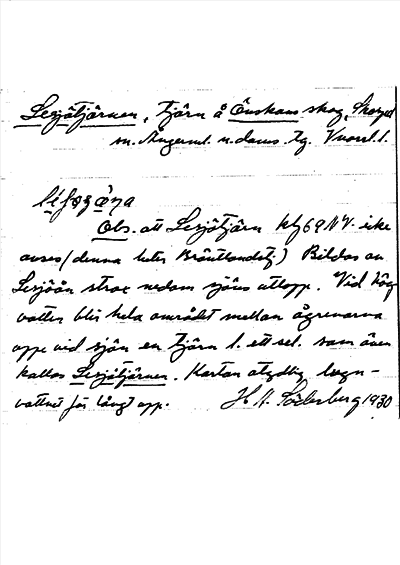 Lesjötjärnen, tjärn å Önskans skog, Skorped
sn. Ångerml. n. doms. tg. Vnorrl. l.
Obs. att Lesjötjärn kbl 69 NV. icke
avses (denna heter Bränntandstj.) Bildas av
Lesjöån strax nedom sjöns utlopp. Vid hög
vatten blir hela området mellan ågrenarna
uppe vid sjön en tjärn l. ett sel. som även
kallas Lesjötjärnen. Kartan otydlig lugn-
vattnet för långt upp. H. A. Söderberg 1930